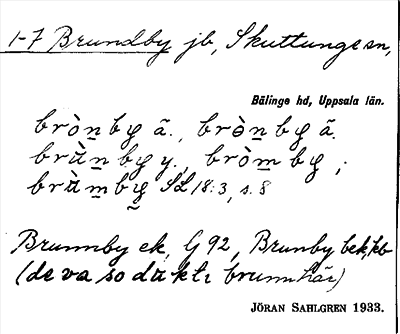 1-7 Brundby jb, Skuttunge sn,
Bälinge hd, Uppsala län.
bròn̲by̲ ã., brə̀n̲by̲ ã.
brʉ̀n̲by̲ y., bròm̲by̲ ;
brʉ̀m̲by̲ SL 18:3, s. 8
Brunnby ek, G 92, Brunby bek, kb
(de va so dʉktı brunn här)
JÖRAN SAHLGREN 1933.